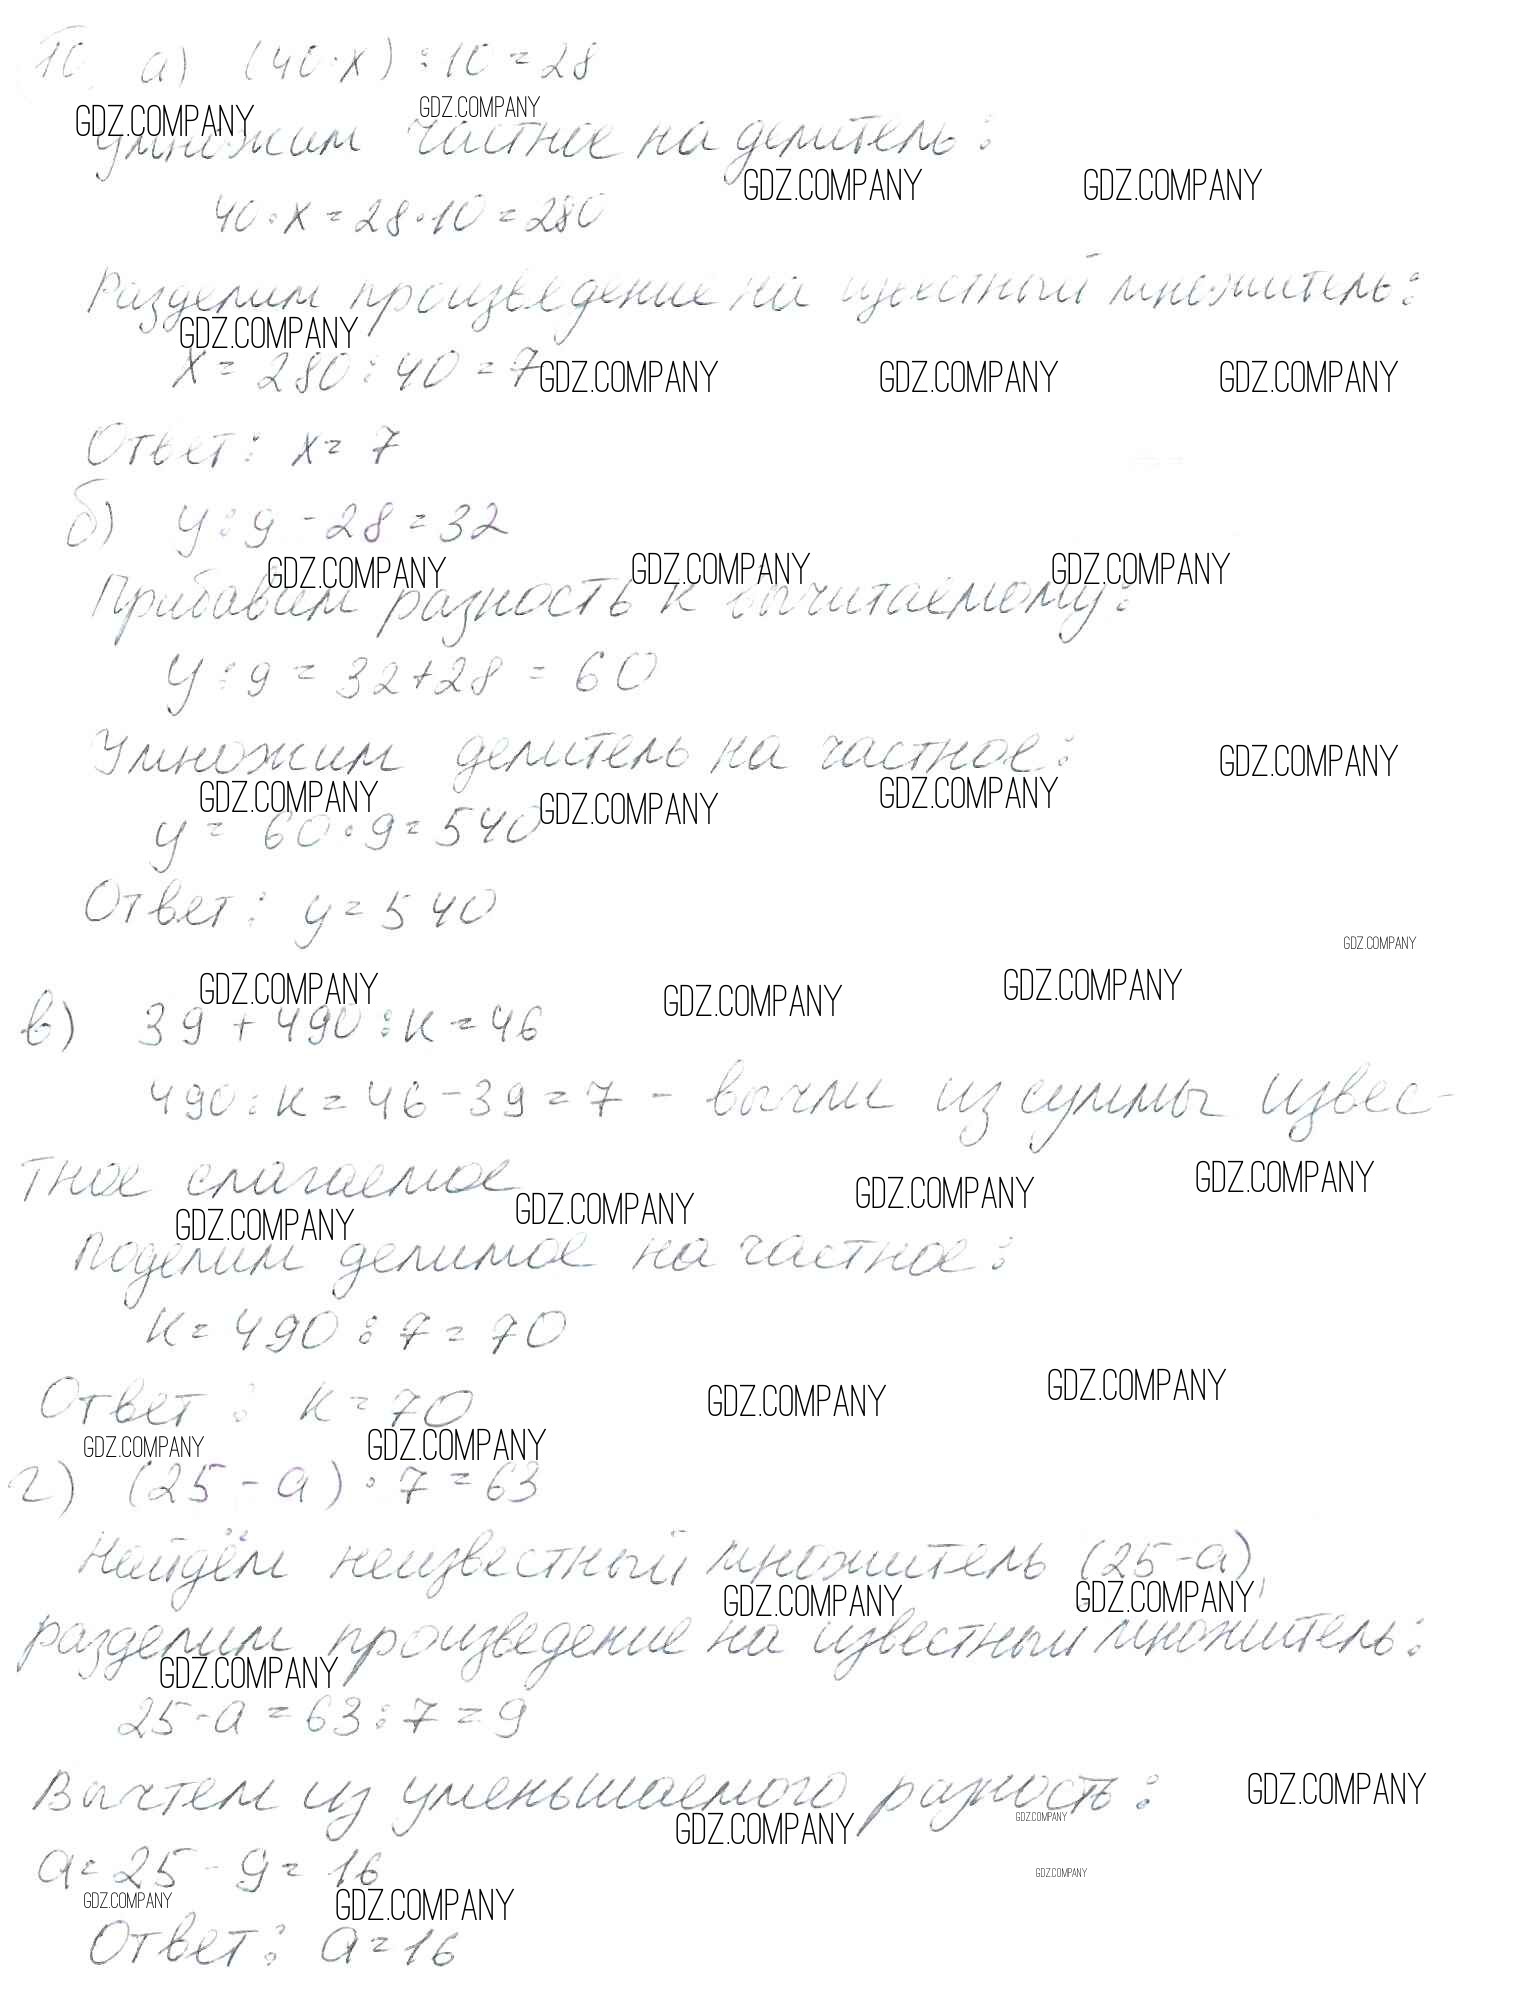 10 а) (40·x):10=28
GDZ.COMPANY GDZ.COMPANY
умножим частное на делитель:
GDZ.COMPANY GDZ.COMPANY
40·x=28·10=280
Разделим произведение на известный множитель:
GDZ.COMPANY
x=280:40=7
GDZ.COMPANY GDZ.COMPANY GDZ.COMPANY
Ответ: x=7
б) y:9-28=32
GDZ.COMPANY GDZ.COMPANY GDZ.COMPANY
Прибавим разность к вычитаемому:
y:9=32+28=60
Умножим делитель на частное:
GDZ.COMPANY
GDZ.COMPANY GDZ.COMPANY GDZ.COMPANY
y=60·9=540
Ответ: y=540
GDZ.COMPANY
GDZ.COMPANY GDZ.COMPANY GDZ.COMPANY
в) 39+490:к=46
490:к=46-39=7 - вычли из суммы извес-
тное слагаемое
GDZ.COMPANY GDZ.COMPANY GDZ.COMPANY GDZ.COMPANY
Поделим делимое на частное:
к=490:7=70
Ответ: к=70
GDZ.COMPANY GDZ.COMPANY
GDZ.COMPANY GDZ.COMPANY
г) (25-а)·7=63
Найдём неизвестный множитель (25-а),
GDZ.COMPANY GDZ.COMPANY
разделим произведение на известный множитель:
GDZ.COMPANY
25-а=63:7=9
Вычтем из уменьшаемого разность:
GDZ.COMPANY
GDZ.COMPANY GDZ.COMPANY
а=25-9=16
GDZ.COMPANY
GDZ.COMPANY GDZ.COMPANY
Ответ: а=16